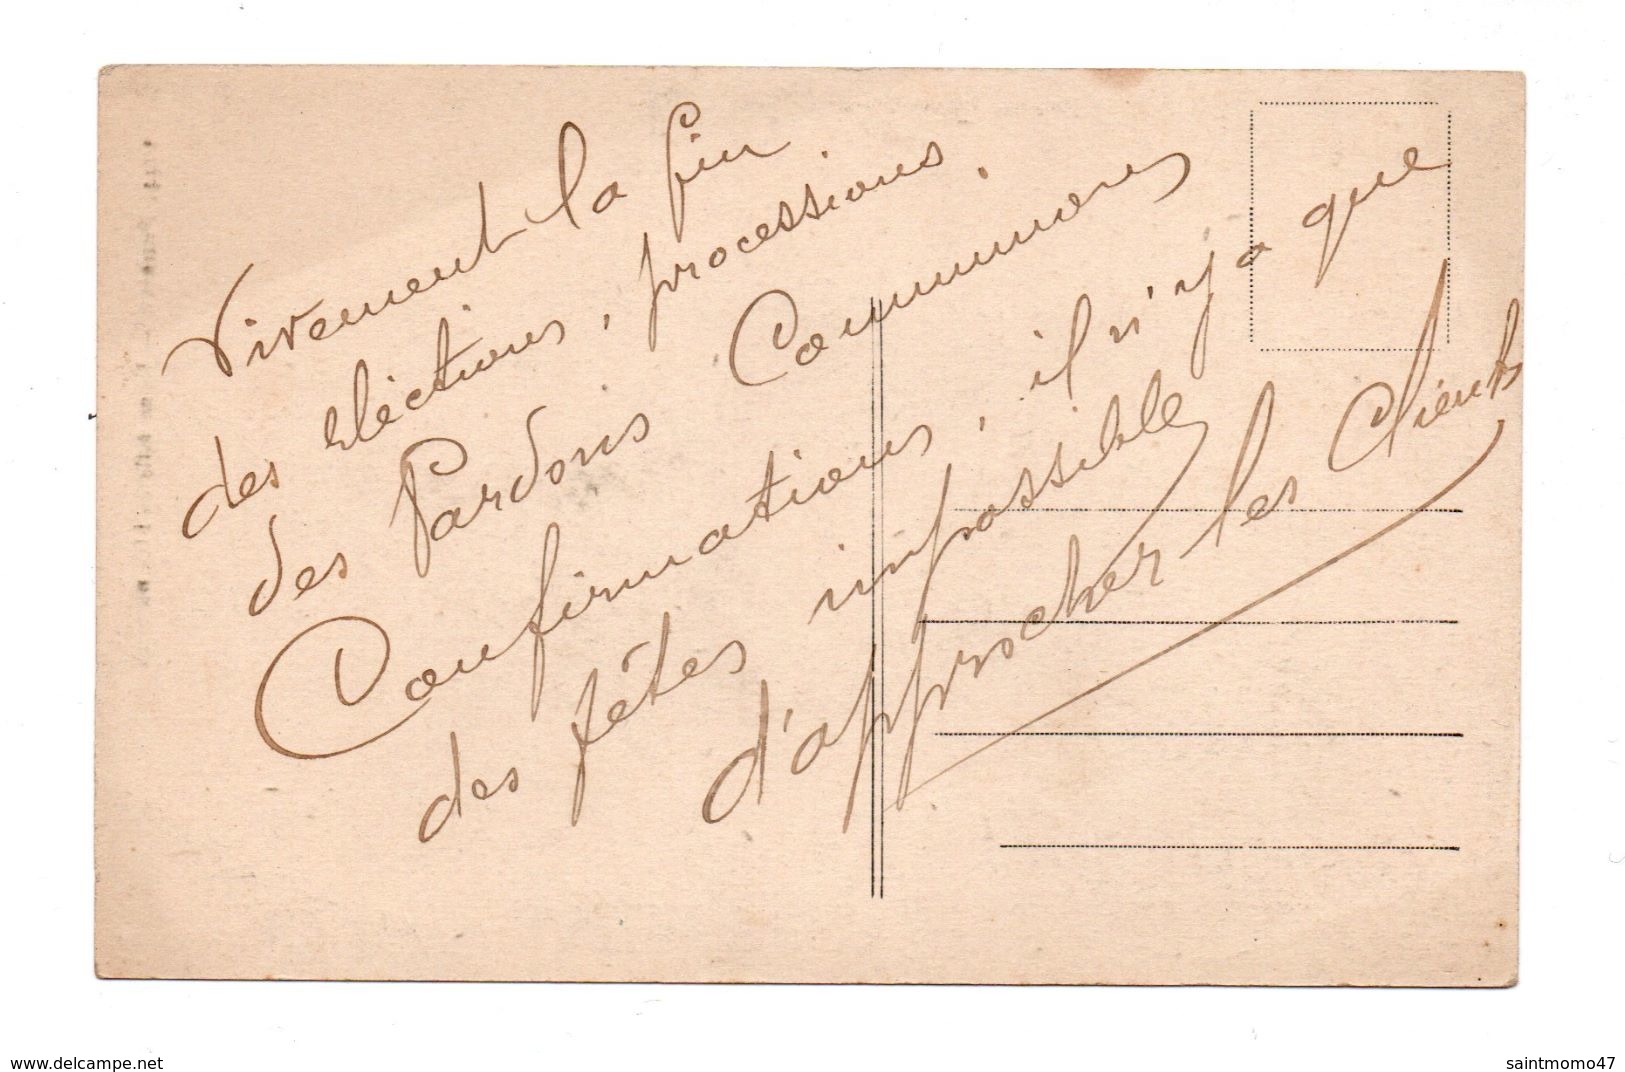 Vivement la fin
des eléctions, processions,
des Pardons Communions
Confirmations, il n'y a que
des fêtes impossible
d'approcher les Clients
www.delcampe.net
saintmomo47